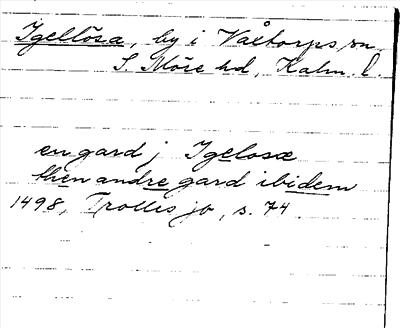 Igellösa, by i Våtorps sn.
S. Möre hd, Kalm. l.
en gard j Igelosæ
then andre gard ibidem
1498, Trolles jb, s. 74